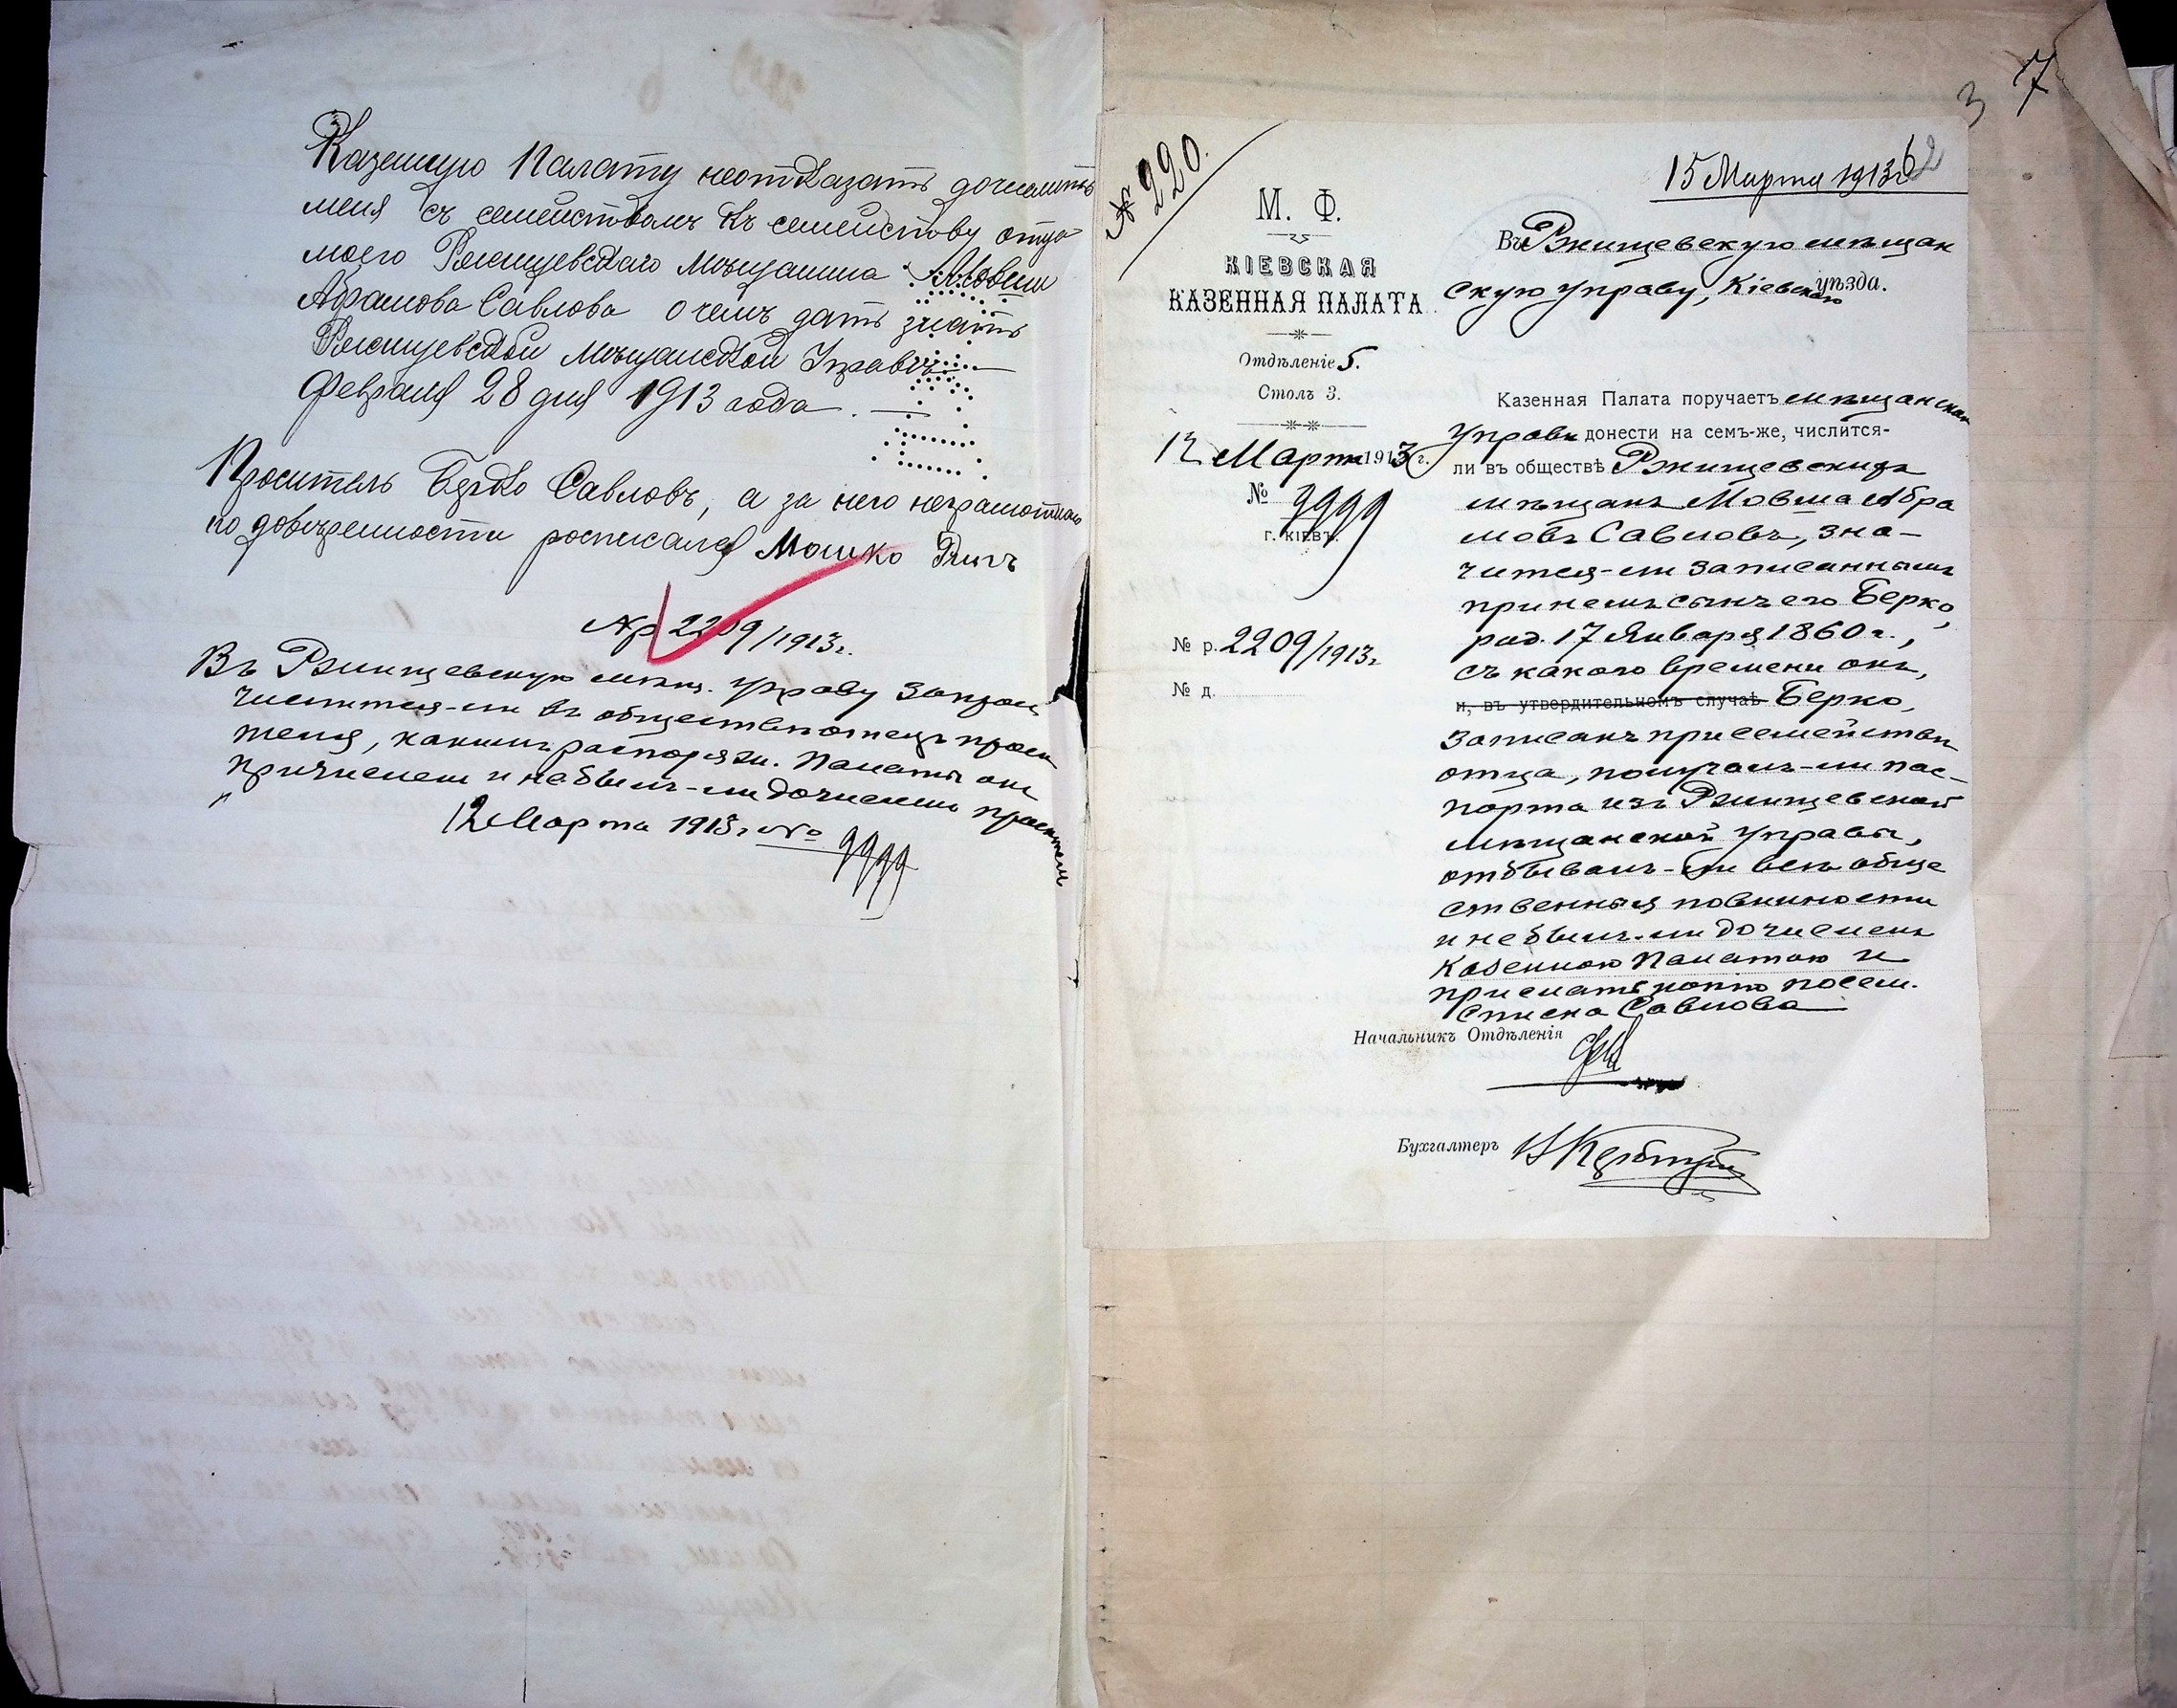 Казенную Палату неотказать дочислить
меня съ семействомъ къ семейству отца
моего Ржищевскаго мѣщанина Мовши
Абрамова Савлова о чемъ дать знать
Ржищевской Мѣщанской Управѣ. —
Февраля 28 дня 1913 года. —
Проситель Берко Савловъ, а за него неграмотнаго
по довѣренности росписался Мошко
№ р 2209/1913 г.
Въ Ржищевскую мѣщ. управу запрос
числится-ли въ обществѣ отецъ проси
теля, какимъ распоряж. Палаты он
причислен и не былъ-ли дочислен проситель
12 Марта 1913 г № 9999
3 7
№ 220.
15 Марта 1913 г
62
М. Ф.
КІЕВСКАЯ
КАЗЕННАЯ ПАЛАТА
Отдѣленіе 5.
Столъ 3.
12 Марта 1913 г.
№ 9999
г. КІЕВЪ.
№ р. 2209/1913 г
№ д.
Въ Ржищевскую мѣщан
скую управу, Кіевскаго уѣзда.
Казенная Палата поручаетъ мѣщанской
Управѣ донести на семъ-же, числится-
ли въ обществѣ Ржищевскихъ
мѣщанъ Мовша Абра
мовъ Савловъ, зна-
чится-ли записаннымъ
при немъ сынъ его Берко,
род. 17 Января 1860 г.,
съ какого времени онъ,
и, въ утвердительномъ случаѣ Берко,
записанъ при семействѣ
отца, получалъ-ли пас-
порта изъ Ржищевской
мѣщанской управы,
отбывалъ-ли всѣ обще
ственныя повинности
и не былъ-ли дочисленъ
Казенною Палатою и
прислать копію посем.
списка Савлова
Начальникъ Отдѣленія
Бухгалтеръ